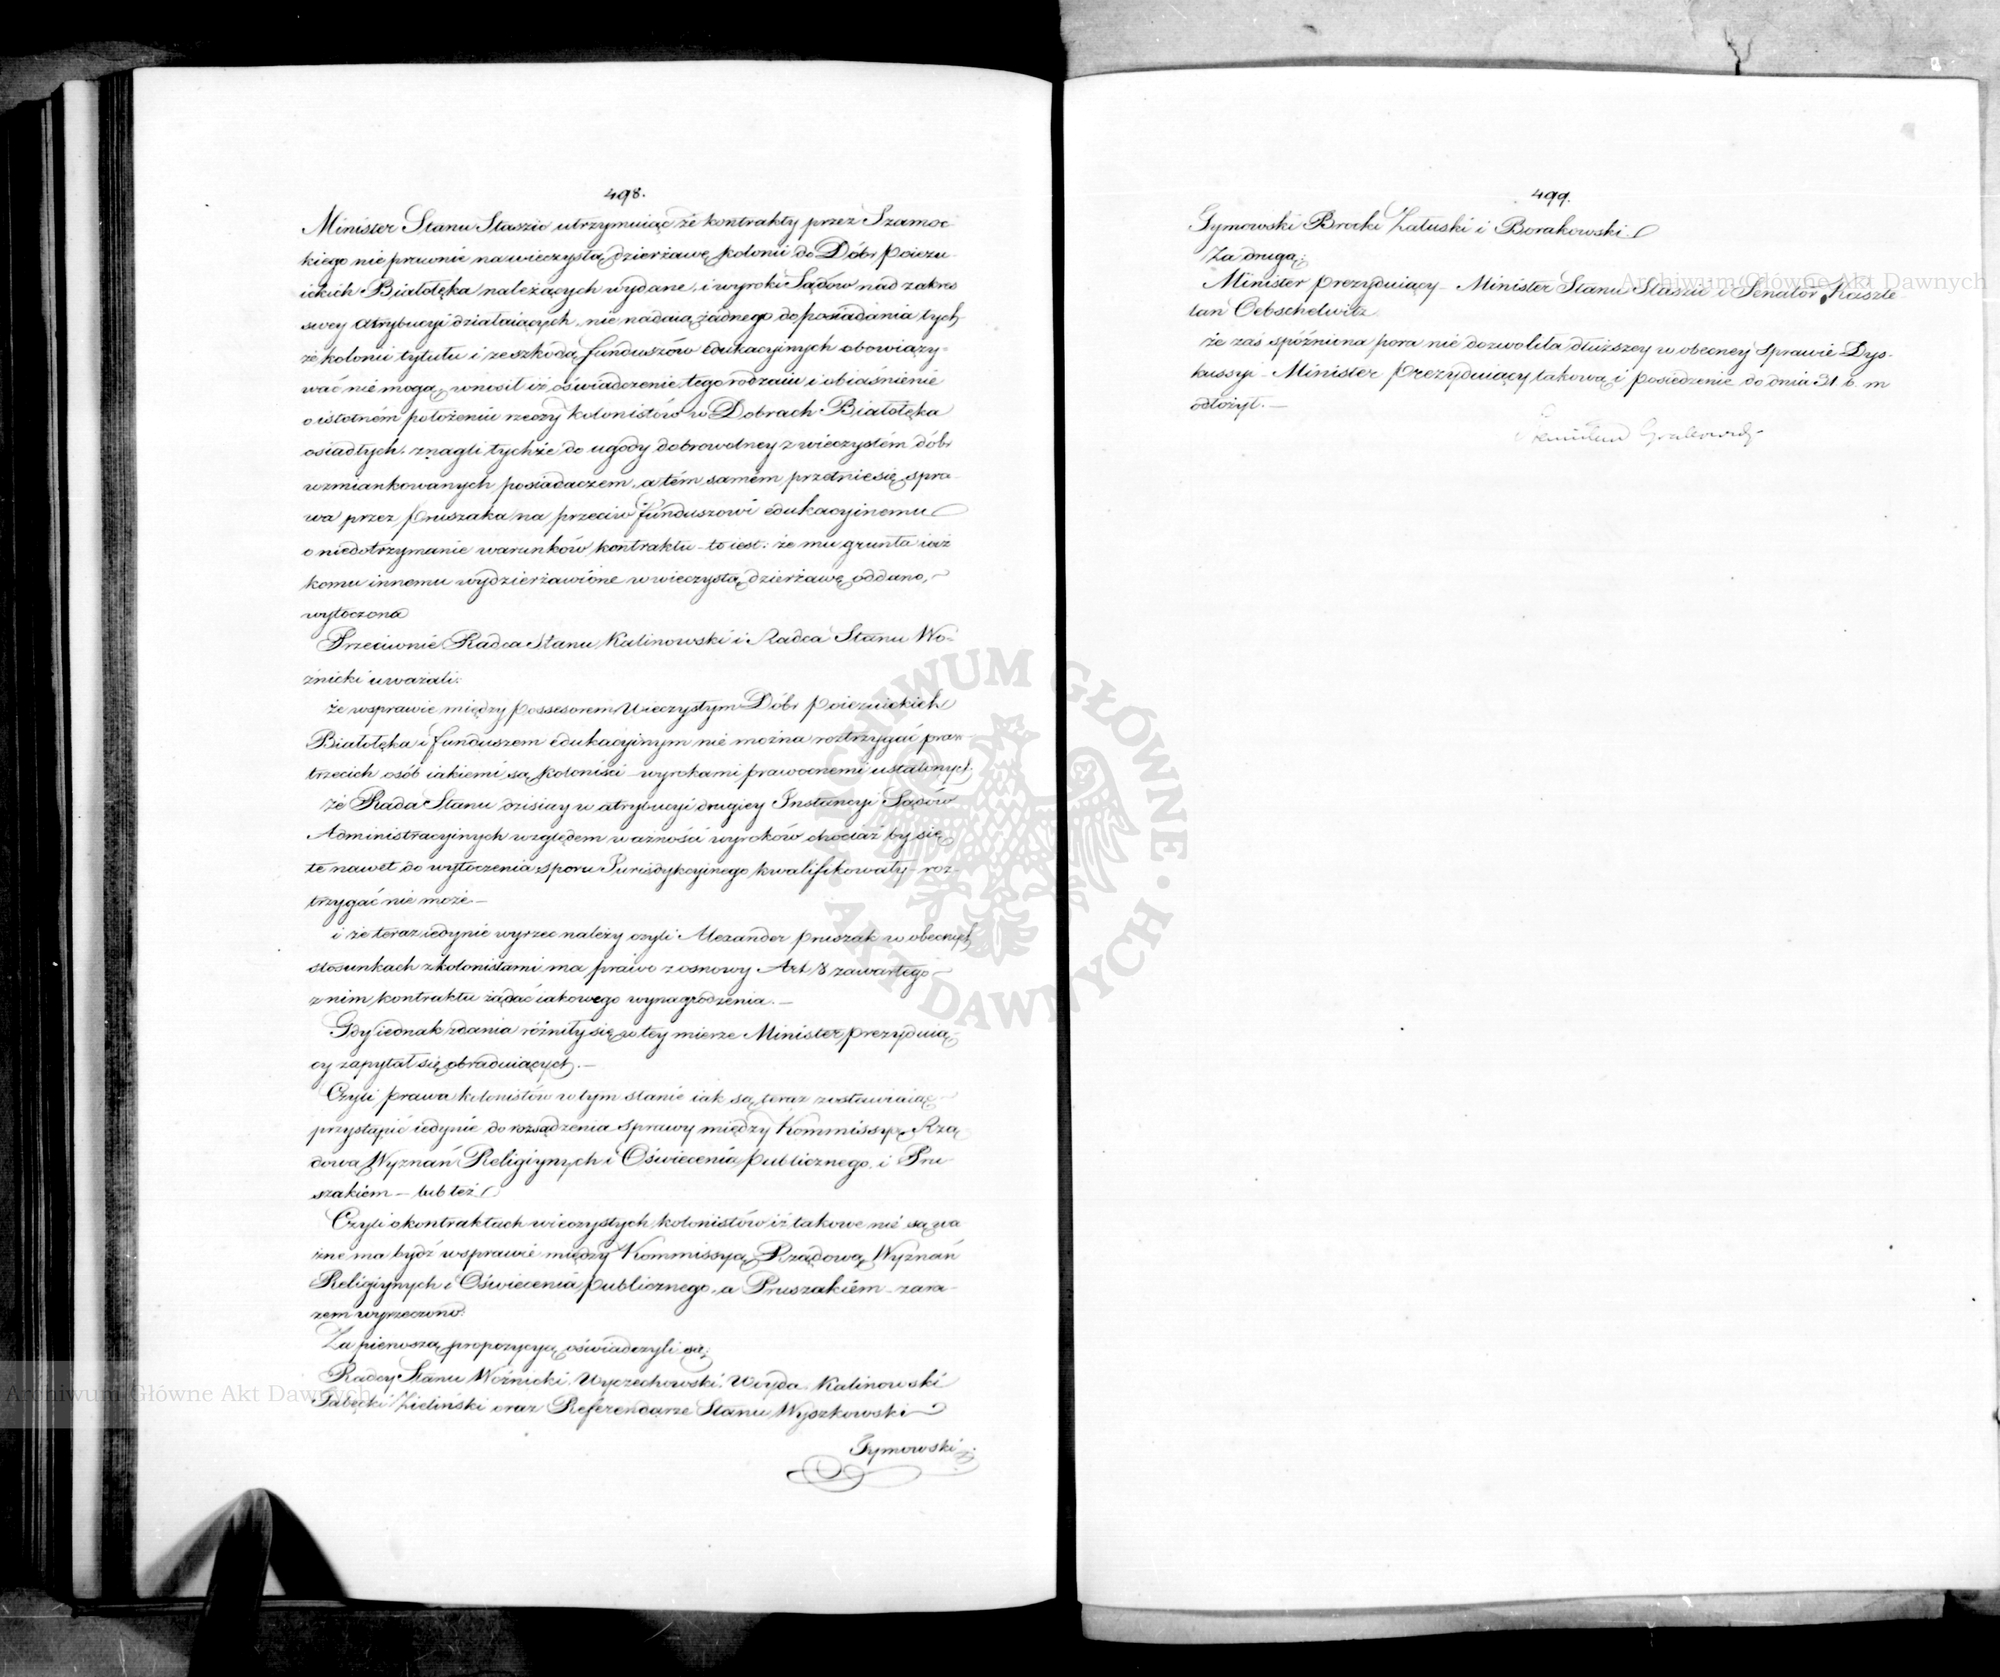 498.
Minister Stanu Staszic utrzymuiąc że kontrakty przez Szamoc
kiego nie prawnie na wieczystą dzierżawę kolonii do Dóbr poiezu
ickich Białołęka należących wydane, i wyroki Sądów nad zakres
swey atrybucyi działaiących, nie nadaią żadnego do posiadania tych
że kolonii tytułu i ze szkodą funduszów edukacyinych obowiązy-
wać nie mogą, wnosił iż oświadczenie tego rodzaiu i obiaśnienie
o istotném położeniu rzeczy kolonistów w Dobrach Białołęka
osiadłych, znagli tychże do ugody dobrowolney z wieczystém dóbr
wzmiankowanych posiadaczem, a tém samém przetnie się spra-
wa przez Pruszaka na przeciw funduszowi edukacyinemu
o niedotrzymanie warunków kontraktu - to iest: że mu grunta iuż
komu innemu wydzierżawione w wieczystą dzierżawę oddano,
wytoczona
Przeciwnie Radca Stanu Kalinowski i Radca Stanu Wo-
źnicki uważali:
że w sprawie między possesorem wieczystym Dóbr poiezuickich
Białołęka i funduszem edukacyinym nie można roztrzygać praw
trzecich osób iakiemi są koloniści - wyrokami prawocnemi ustalonych;
że Rada Stanu dzisiay w atrybucyi drugiey Instancyi Sądów
Administracyinych względem ważności wyroków chociaż by się
te nawet do wytoczenia sporu Jurisdykcyinego kwalifikowały - roz-
trzygać nie może -
i że teraz iedynie wyrzec należy czyli Alexander Pruszak w obecnych
stosunkach z kolonistami ma prawo z osnowy Art. 8 zawartego
z nim kontraktu żądać iakowego wynagrodzenia. -
Gdy iednak zdania różniły się w tey mierze Minister prezyduią-
cy zapytał się obraduiących. -
Czyli prawa kolonistów w tym stanie iak są teraz zostawiaiąc
przystąpić iedynie do rozsądzenia sprawy między Kommissyą Rzą
dową Wyznań Religiynych i Oświecenia publicznego, i Pru
szakiem - lub też
Czyli o kontraktach wieczystych kolonistów iż takowe nie są wa
żne ma bydź w sprawie między Kommissyą Rządową Wyznań
Religiynych i Oświecenia publicznego, a Pruszakiem - zara-
zem wyrzeczono:
Za pierwszą propozycyą oświadczyli się;
Radcy Stanu Woźnicki, Wyczechowski, Woyda, Kalinowski
Tabęcki Zieliński oraz Referendarze Stanu Wyszkowski
Tymowski
499.
Tymowski Brocki Załuski i Borakowski.
Za drugą;
Minister prezyduiący - Minister Stanu Staszic i Senator Kaszte-
lan Oebschelwitz
że zaś spóźniona pora nie dozwoliła dłuższey w obecney sprawie Dys-
kussyi - Minister prezyduiący takową i posiedzenie do dnia 31 b. m
odłożył. -
Stanisław Grabowski
Archiwum Główne Akt Dawnych
Archiwum Główne Akt Dawnych
ARCHIWUM GŁÓWNE · AKT DAWNYCH ·